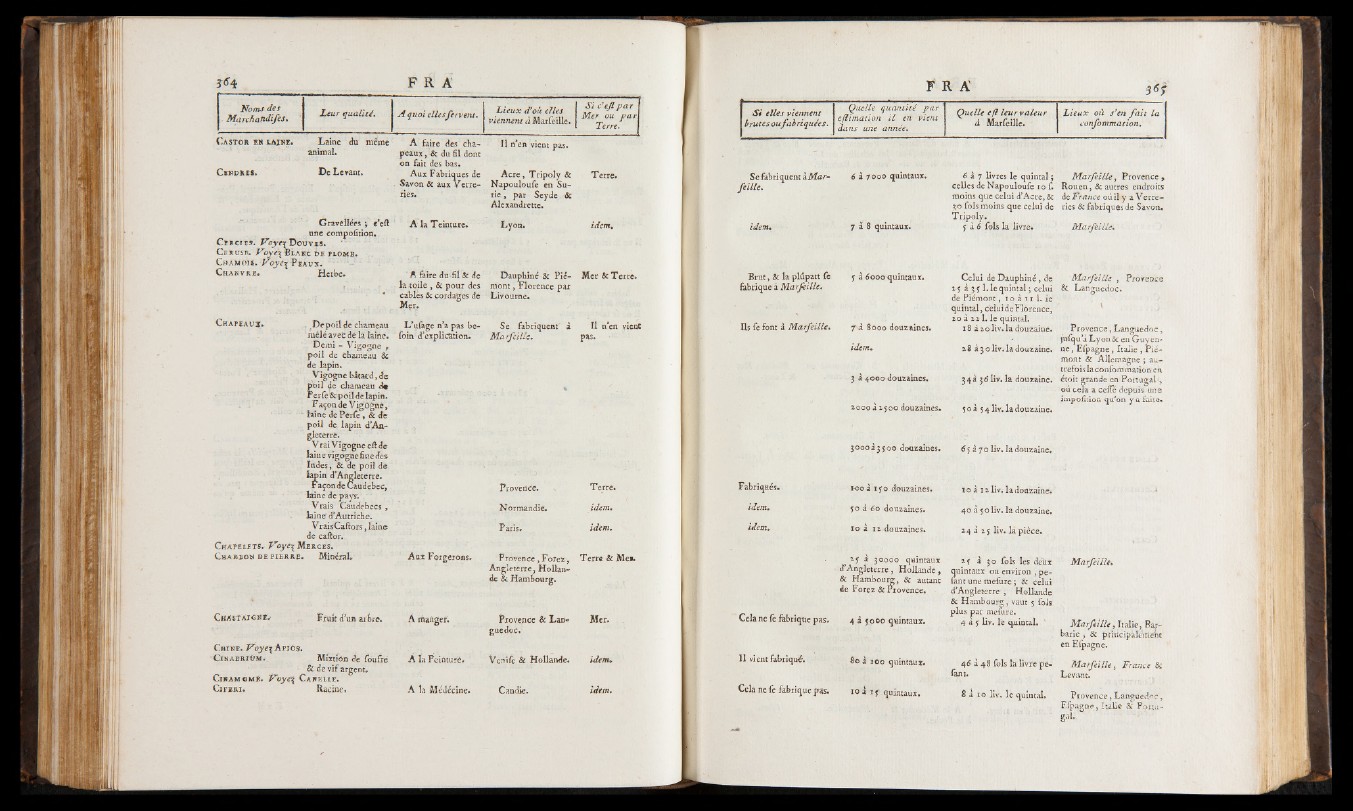 364
FRA
Noms des
Marchandiſes.
Leur qualité.
A quoi elles ſervent.
Lieux d'où elles
viennent à Marſeille.
Si c'eſt par
Mer ou par
Terre.
CASTOR EN LAINE.
Laine du même
animal.
A faire des cha-
peaux, & du fil dont
on fait des bas.
Il n'en vient pas.
CENDRES.
De Levant.
Aux Fabriques de
Savon & aux Verre-
ries.
Acre, Tripoly &
Napoulouſe en Su-
rie, par Seyde &
Alexandrette.
Terre.
Gravellées; c'eſt
une compoſition.
A la Teinture.
Lyon.
idem.
CERCIES. Voyez DOUVES.
CERUSE. Voyez BLANC DE PLOMB.
CHAMOIS. Voyez PEAUX.
CHANVRE.
Herbe.
A faire du fil & de
la toile, & pour des
cables & cordages de
Mer.
Dauphiné & Pié-
mont, Florence par
Livourne.
Mer & Terre.
CHAPEAUX.
De poil de chameau
mêlé avec de la laine.
L'uſage n'a pas be-
ſoin d'explication.
Se fabriquent à
Marſeille.
Il n'en vient
pas.
Demi-Vigogne,
poil de chameau &
de lapin.
Vigogne bâtard, de
poil de chameau de
Perſe & poil de lapin.
Façon de Vigogne,
laine de Perſe, & de
poil de lapin d'An-
gleterre.
Vrai Vigogne eſt de
laine vigogne fine des
Indes, & de poil de
lapin d'Angleterre.
Façon de Caudebec,
laine de pays.
Provence.
Terre.
Vrais Caudebecs,
laine d'Autriche.
Normandie.
idem.
Vrais Caſtors, laine
de caſtor.
Paris.
idem.
CHAPELETS. Voyez MERCES.
CHARBON DE PIERRE.
Minéral.
Aux Forgerons.
Provence, Forez,
Angleterre, Hollan-
de & Hambourg.
Terre & Mer.
CHASTAIGNE.
Fruit d'un arbre.
A manger.
Provence & Lan-
guedoc.
Mer.
CHINE. Voyez APIOS.
CINABRIUM.
Mixtion de ſoufre
& de vif argent.
A la Peinture.
Veniſe & Hollande.
idem.
CINAMOME. Voyez CANELLE.
CIPERI.
Racine.
A la Médécine.
Candie.
idem.
FRA
365
Si elles viennent
brutes ou fabriquées.
Quelle quantité par
eſtimation il en vient
dans une année.
Quelle eſt leur valeur
à Marſeille.
Lieux où s'en fait la
conſommation.
Se fabriquent à Mar-
ſeille.
6 à 7000 quintaux.
6 à 7 livres le quintal;
celles de Napoulouſe 10 ſ.
moins que celui d'Acre, &
30 ſols moins que celui de
Tripoly.
Marſeille, Provence,
Rouen, & autres endroits
de France où il y a Verre-
ries & fabriques de Savon.
idem.
7 à 8 quintaux.
5 à 6 ſols la livre.
Marſeille.
Brut, & la plûpart ſe
fabrique à Marſeille.
5 à 6000 quintaux.
Celui de Dauphiné, de
25 à 35 l. le quintal; celui
de Piémont, 10 à 11 l. le
quintal, celui de Florence,
20 à 22 l. le quintal.
Marſeille, Provence
& Languedoc.
Ils ſe font à Marſeille.
7 à 8000 douzaines.
18 à 20 liv. la douzaine.
Provence, Languedoc,
juſqu'à Lyon & en Guyen-
ne, Eſpagne, Italie, Pié-
mont & Allemagne; au-
trefois la conſommation en
étoit grande en Portugal,
où cela a ceſſé depuis une
impoſition qu'on y a faite.
idem.
28 à 30 liv. la douzaine.
3 à 4000 douzaines.
34 à 36 liv. la douzaine.
2000 à 2500 douzaines.
50 à 54 liv. la douzaine.
3000 à 3500 douzaines.
65 à 70 liv. la douzaine.
Fabriqués.
100 à 150 douzaines.
10 à 12 liv. la douzaine.
idem.
50 à 60 douzaines.
40 à 50 liv. la douzaine.
idem.
10 à 12 douzaines.
24 à 25 liv. la pièce.
25 à 30000 quintaux
d'Angleterre, Hollande,
& Hambourg, & autant
de Forez & Provence.
25 à 30 ſols les deux
quintaux ou environ, pe-
ſant une meſure; & celui
d'Angleterre, Hollande
& Hambourg, vaut 5 ſols
plus par meſure.
Marſeille.
Cela ne ſe fabrique pas.
4 à 5000 quintaux.
4 à 5 liv. le quintal.
Marſeille, Italie, Bar-
barie, & principalement
en Eſpagne.
Il vient fabriqué.
80 à 100 quintaux.
46 à 48 ſols la livre pe-
ſant.
Marſeille, France &
Levant.
Cela ne ſe fabrique pas.
10 à 15 quintaux.
8 à 10 liv. le quintal.
Provence, Languedoc,
Eſpagne, Italie & Portu-
gal.